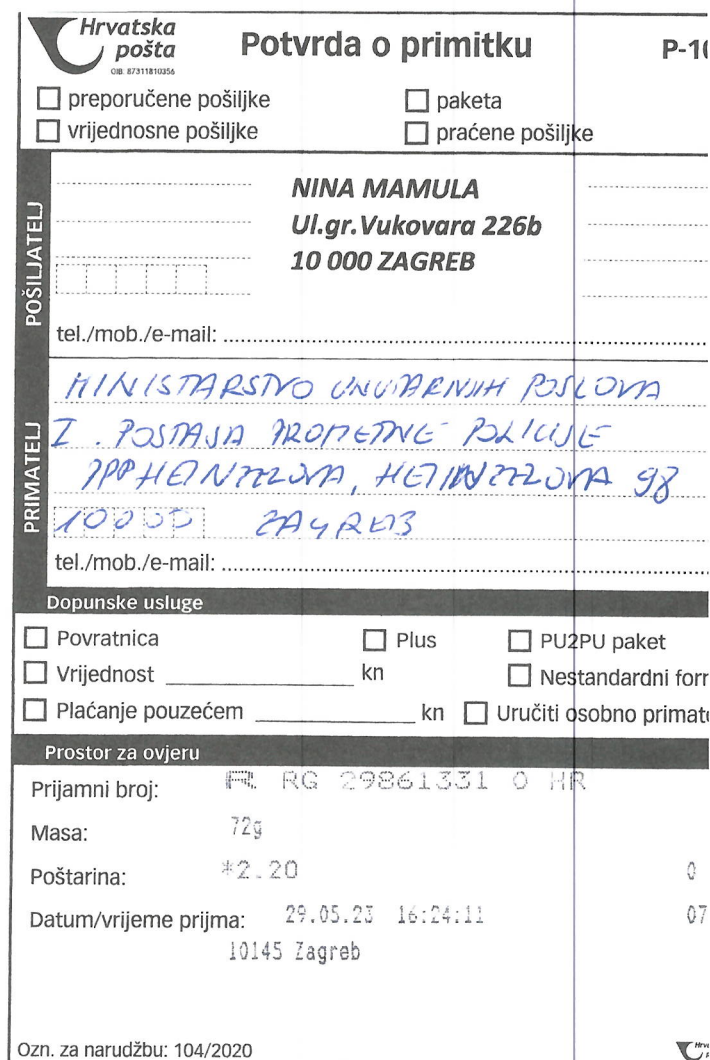 Hrvatska
pošta
OIB: 87311810356
Potvrda o primitku
P-10
preporučene pošiljke
paketa
vrijednosne pošiljke
praćene pošiljke
POŠILJATELJ
NINA MAMULA
Ul.gr.Vukovara 226b
10 000 ZAGREB
tel./mob./e-mail:
PRIMATELJ
MINISTARSTVO UNUTARNJIH POSLOVA
I. POSTAJA PROMETNE POLICIJE
PPP HEINZELOVA, HEINZELOVA 98
10000 ZAGREB
tel./mob./e-mail:
Dopunske usluge
Povratnica
Plus
PU2PU paket
Vrijednost kn
Nestandardni forr
Plaćanje pouzećem kn
Uručiti osobno primate
Prostor za ovjeru
Prijamni broj: R RG 29861331 0 HR
Masa: 72g
Poštarina: *2.20 0
Datum/vrijeme prijma: 29.05.23 16:24:11 07
10145 Zagreb
Ozn. za narudžbu: 104/2020